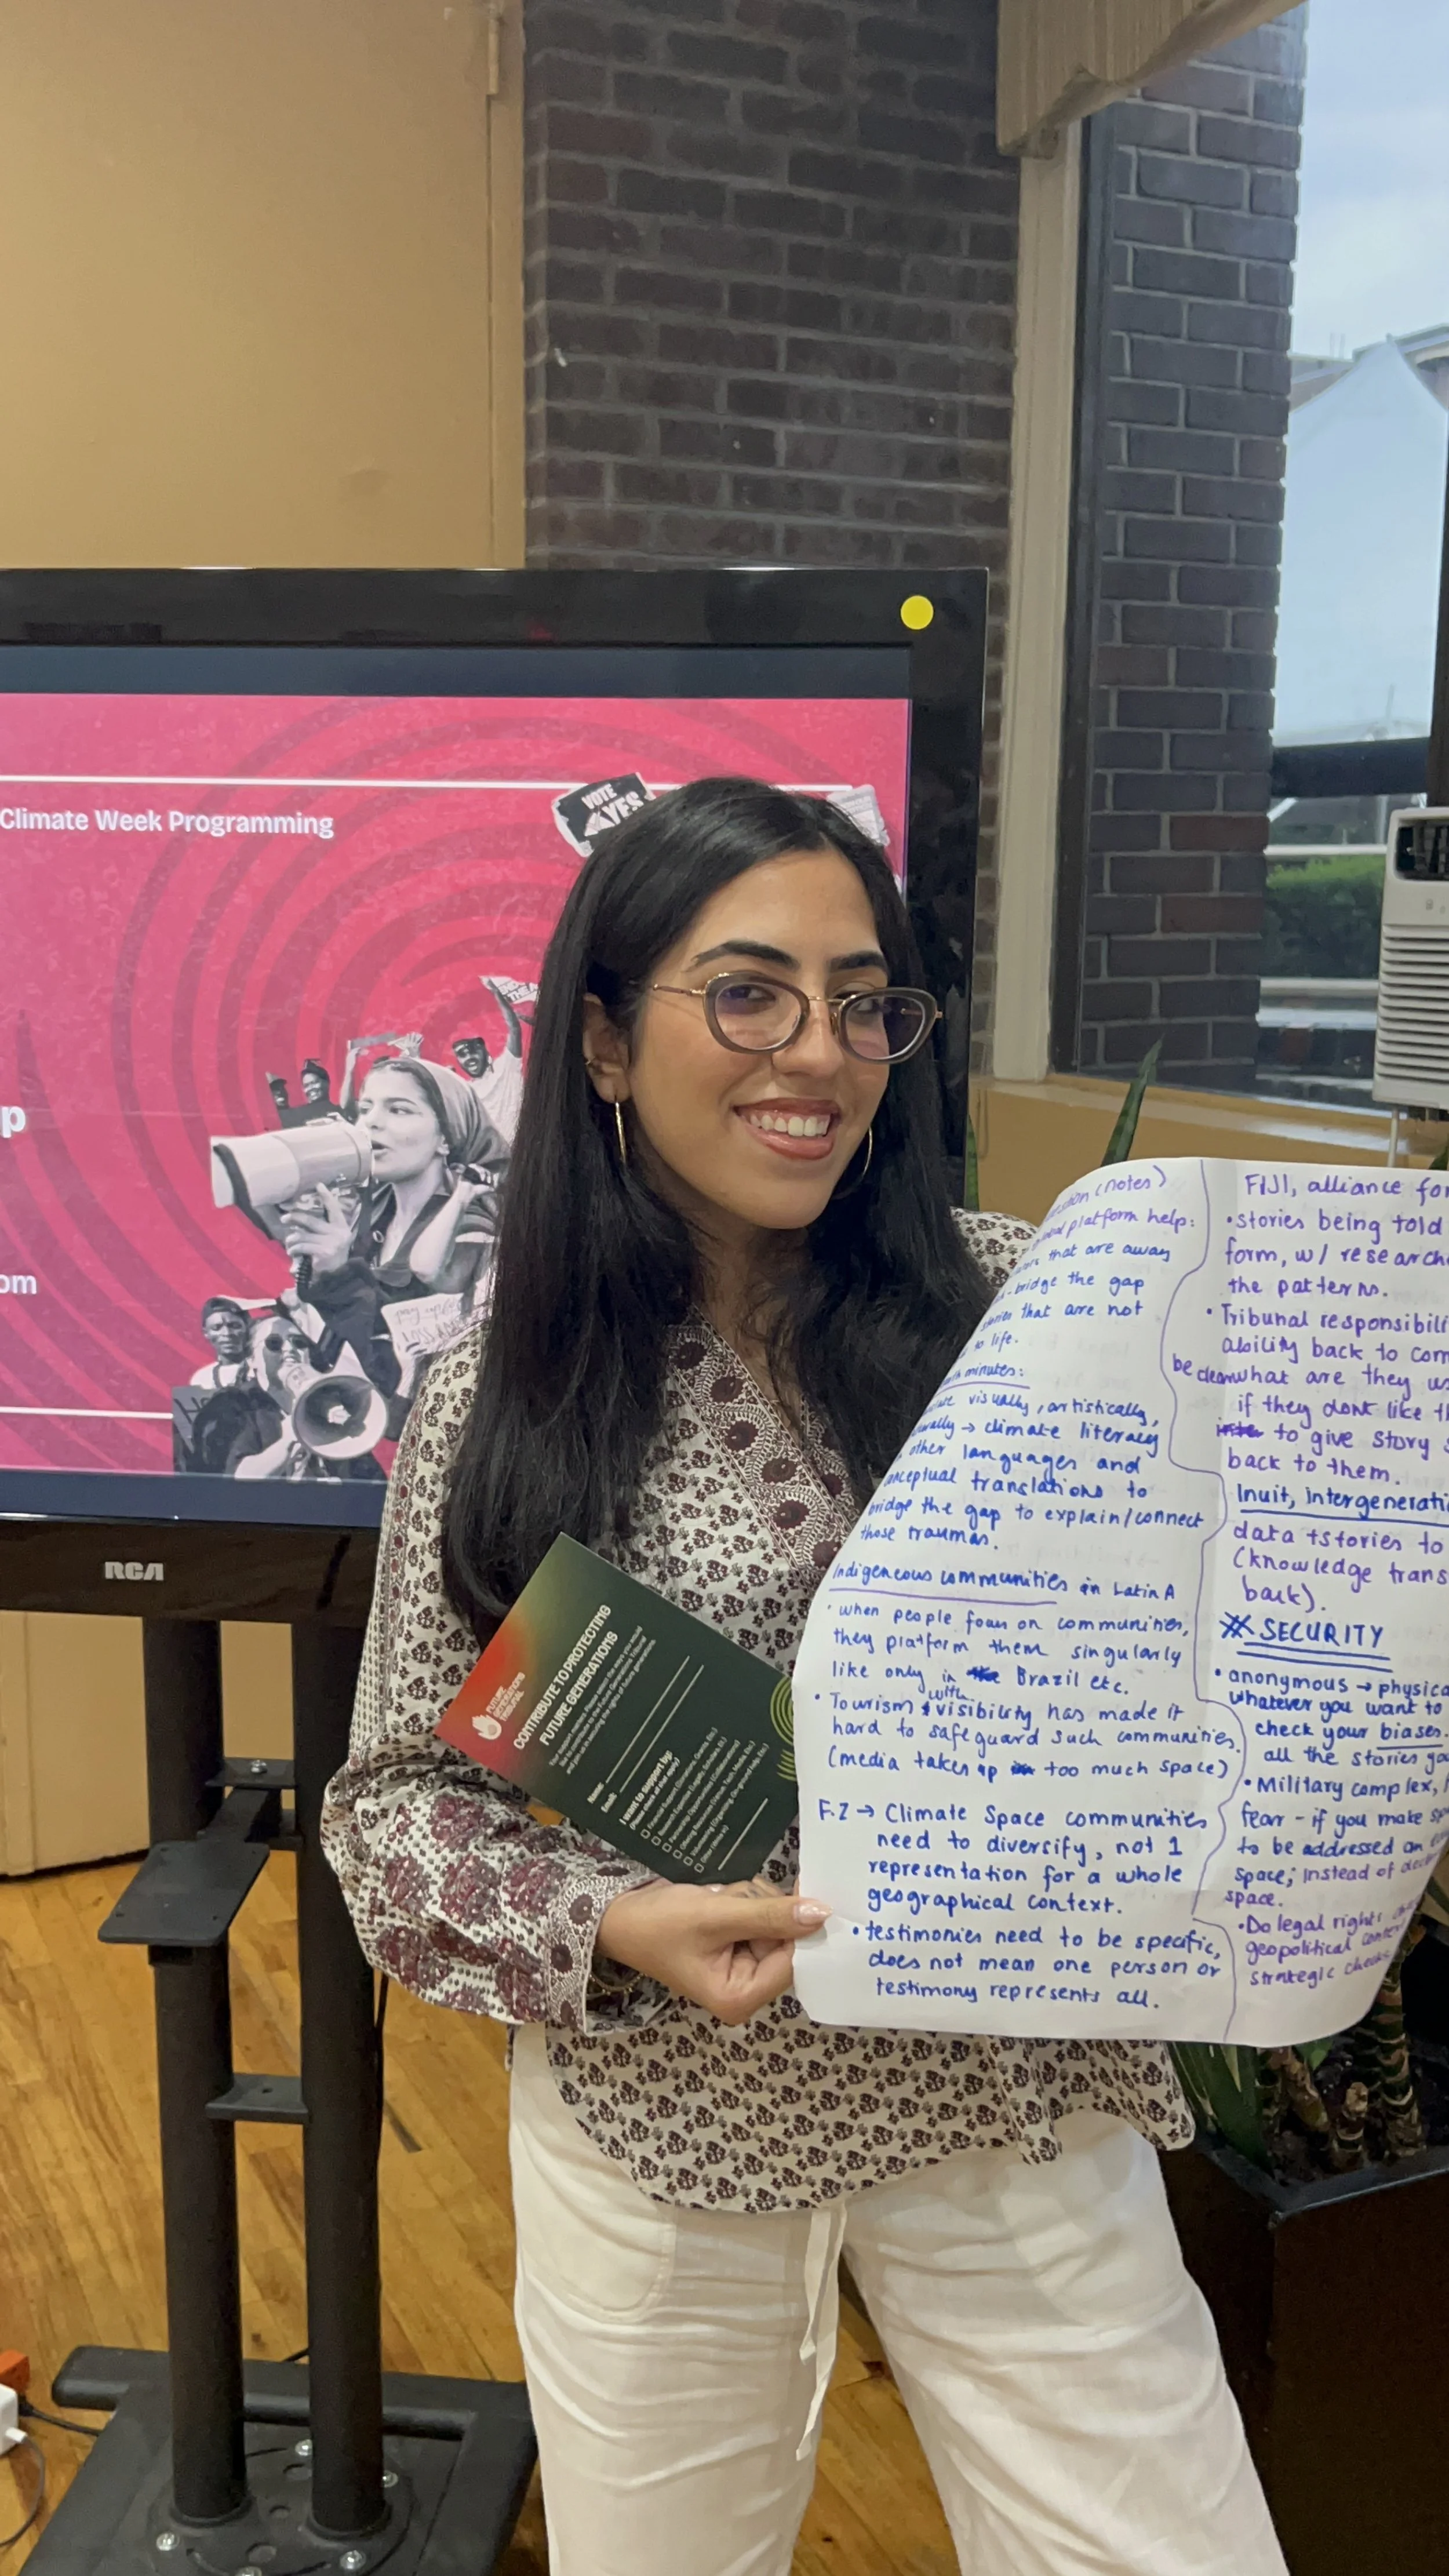 VOTE
YES
Climate Week Programming
p
om
RCA
FUTURE
GENERATIONS
TRIBUNAL
CONTRIBUTE TO PROTECTING
FUTURE GENERATIONS
Name:
Email:
I want to support by:
(notes)
platform help:
that are away
bridge the gap
that are not
to life.
minutes:
visually, artistically,
→ climate literacy
other languages and
translations to
bridge the gap to explain/connect
those traumas.
Indigeneous communities in Latin A
• when people focus on communities,
they platform them singularly
like only in Brazil etc.
• Tourism with visibility has made it
hard to safeguard such communities.
(media takes up too much space)
F.Z → Climate Space communities
need to diversify, not 1
representation for a whole
geographical context.
• testimonies need to be specific,
does not mean one person or
testimony represents all.
FIJI, alliance for
• stories being told
form, w/ research
the patterns.
• Tribunal responsibili
ability back to com
be clear what are they us
if they dont like th
to give story s
back to them.
Inuit, intergenerati
data + stories to
(knowledge trans
back).
SECURITY
• anonymous → physica
whatever you want to
check your biases.
all the stories yo
• Military complex,
fear - if you make sp
to be addressed an
space; instead of
space.
• Do legal rights
geopolitical
strategic